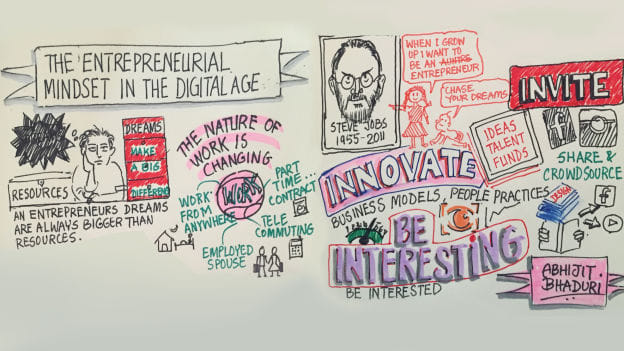 THE ENTREPRENEURIAL
MINDSET IN THE DIGITAL AGE
RESOURCES
DREAMS
MAKE
A BIG
DIFFEREN
AN ENTREPRENEURS DREAMS
ARE ALWAYS BIGGER THAN
RESOURCES.
THE NATURE OF
WORK IS
CHANGING
WORK
PART
TIME...
CONTRACT
WORK
FROM
ANYWHERE
TELE
COMMUTING
EMPLOYED
SPOUSE
STEVE JOBS
1955-2011
WHEN I GROW
UP I WANT TO
BE AN
ENTREPRENEUR
CHASE
YOUR DREAMS
INNOVATE
BUSINESS MODELS, PEOPLE PRACTICES
BE
INTERESTING
BE INTERESTED
INVITE
IDEAS
TALENT
FUNDS
SHARE &
CROWDSOURCE
DESIGN
f
ABHIJIT
BHADURI